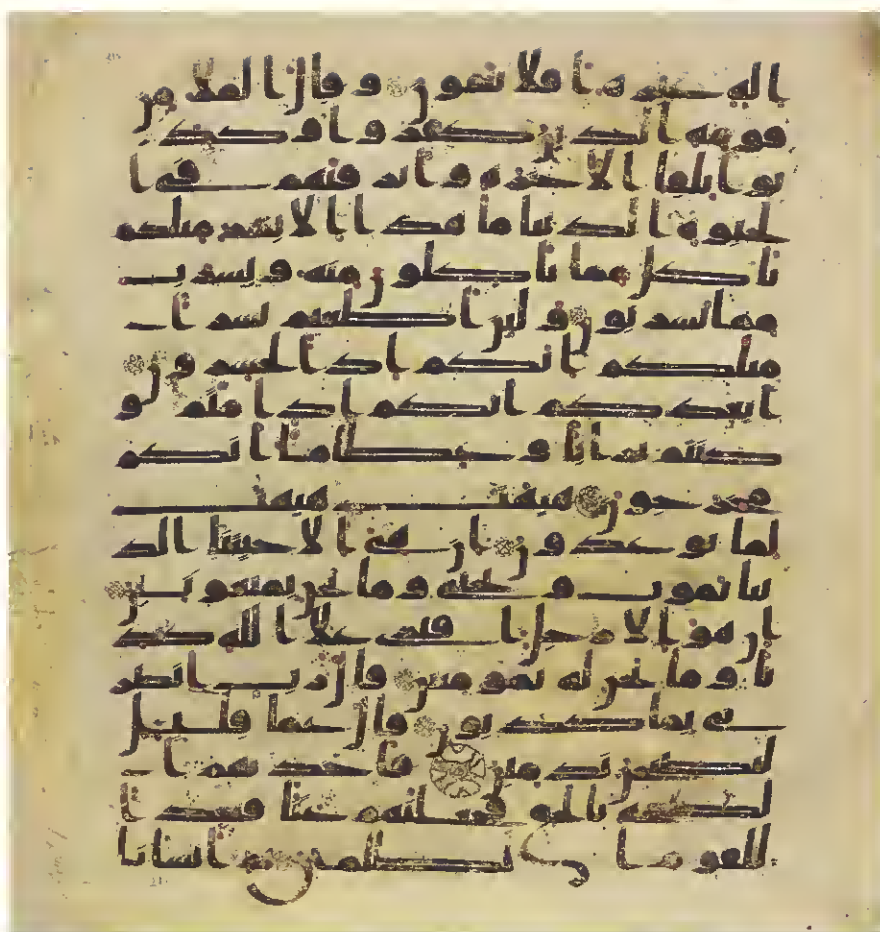 اله غيره افلا تتقون وقال الملا من
قومه الذين كفروا وكذ
بوا بلقا الاخره واترفنهم في ا
لحيوه الدنيا ما هذا الا بشر مثلكم
ياكل مما تاكلون منه ويشرب
مما تشربون ولين اطعتم بشرا
مثلكم انكم اذا لخسرون
ايعدكم انكم اذا متم و
كنتم ترابا وعظاما انكم
مخرجون هيهت هيهت
لما توعدون ان هي الا حياتنا الد
نيا نموت ونحيا وما نحن بمبعوثين
ان هو الا رجل ا فترى على الله كذ
با وما نحن له بمومنين قال رب انصر
ني بما كذبون قال عما قليل
ليصبحن ندمين فاخذتهم ا
لصيحه بالحق فجعلنهم غثا فبعدا
للقوم الظلمين ثم انشانا